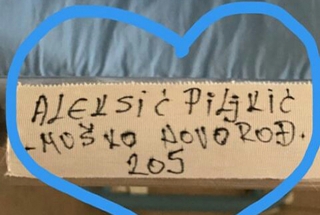 ALEKSIĆ PILJKIĆ
-MUŠKO NOVOROĐ.
205